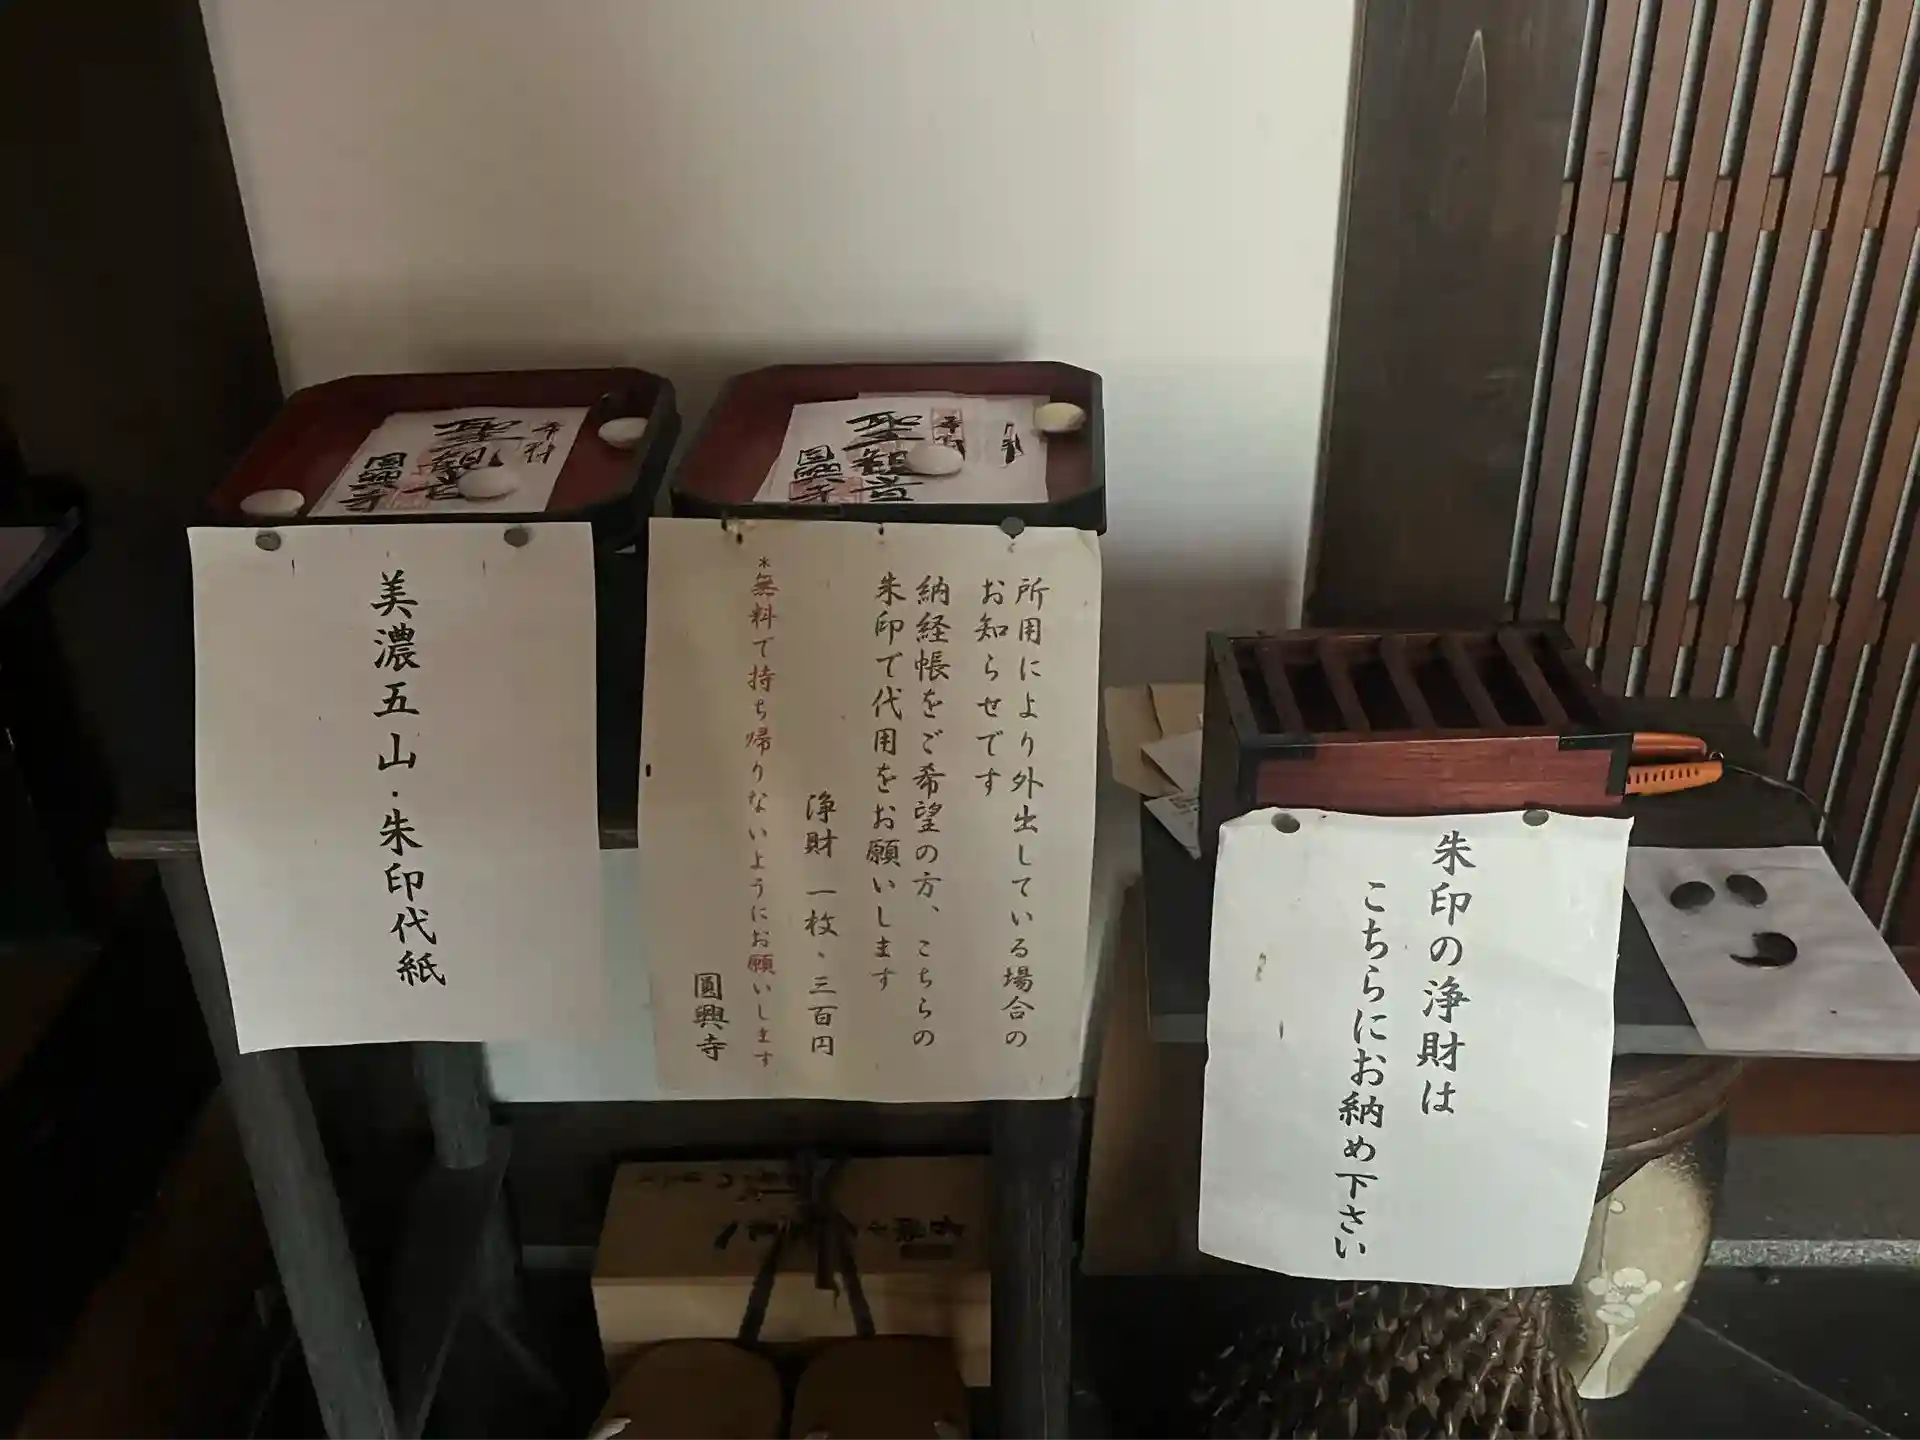 奉拝
聖観音
圓興寺
奉拝
聖観音
圓興寺
美濃五山・朱印代紙
所用により外出している場合の
お知らせです
納経帳をご希望の方、こちらの
朱印で代用をお願いします
浄財 一枚・三百円
*無料で持ち帰りないようにお願いします
圓興寺
朱印の浄財は
こちらにお納め下さい